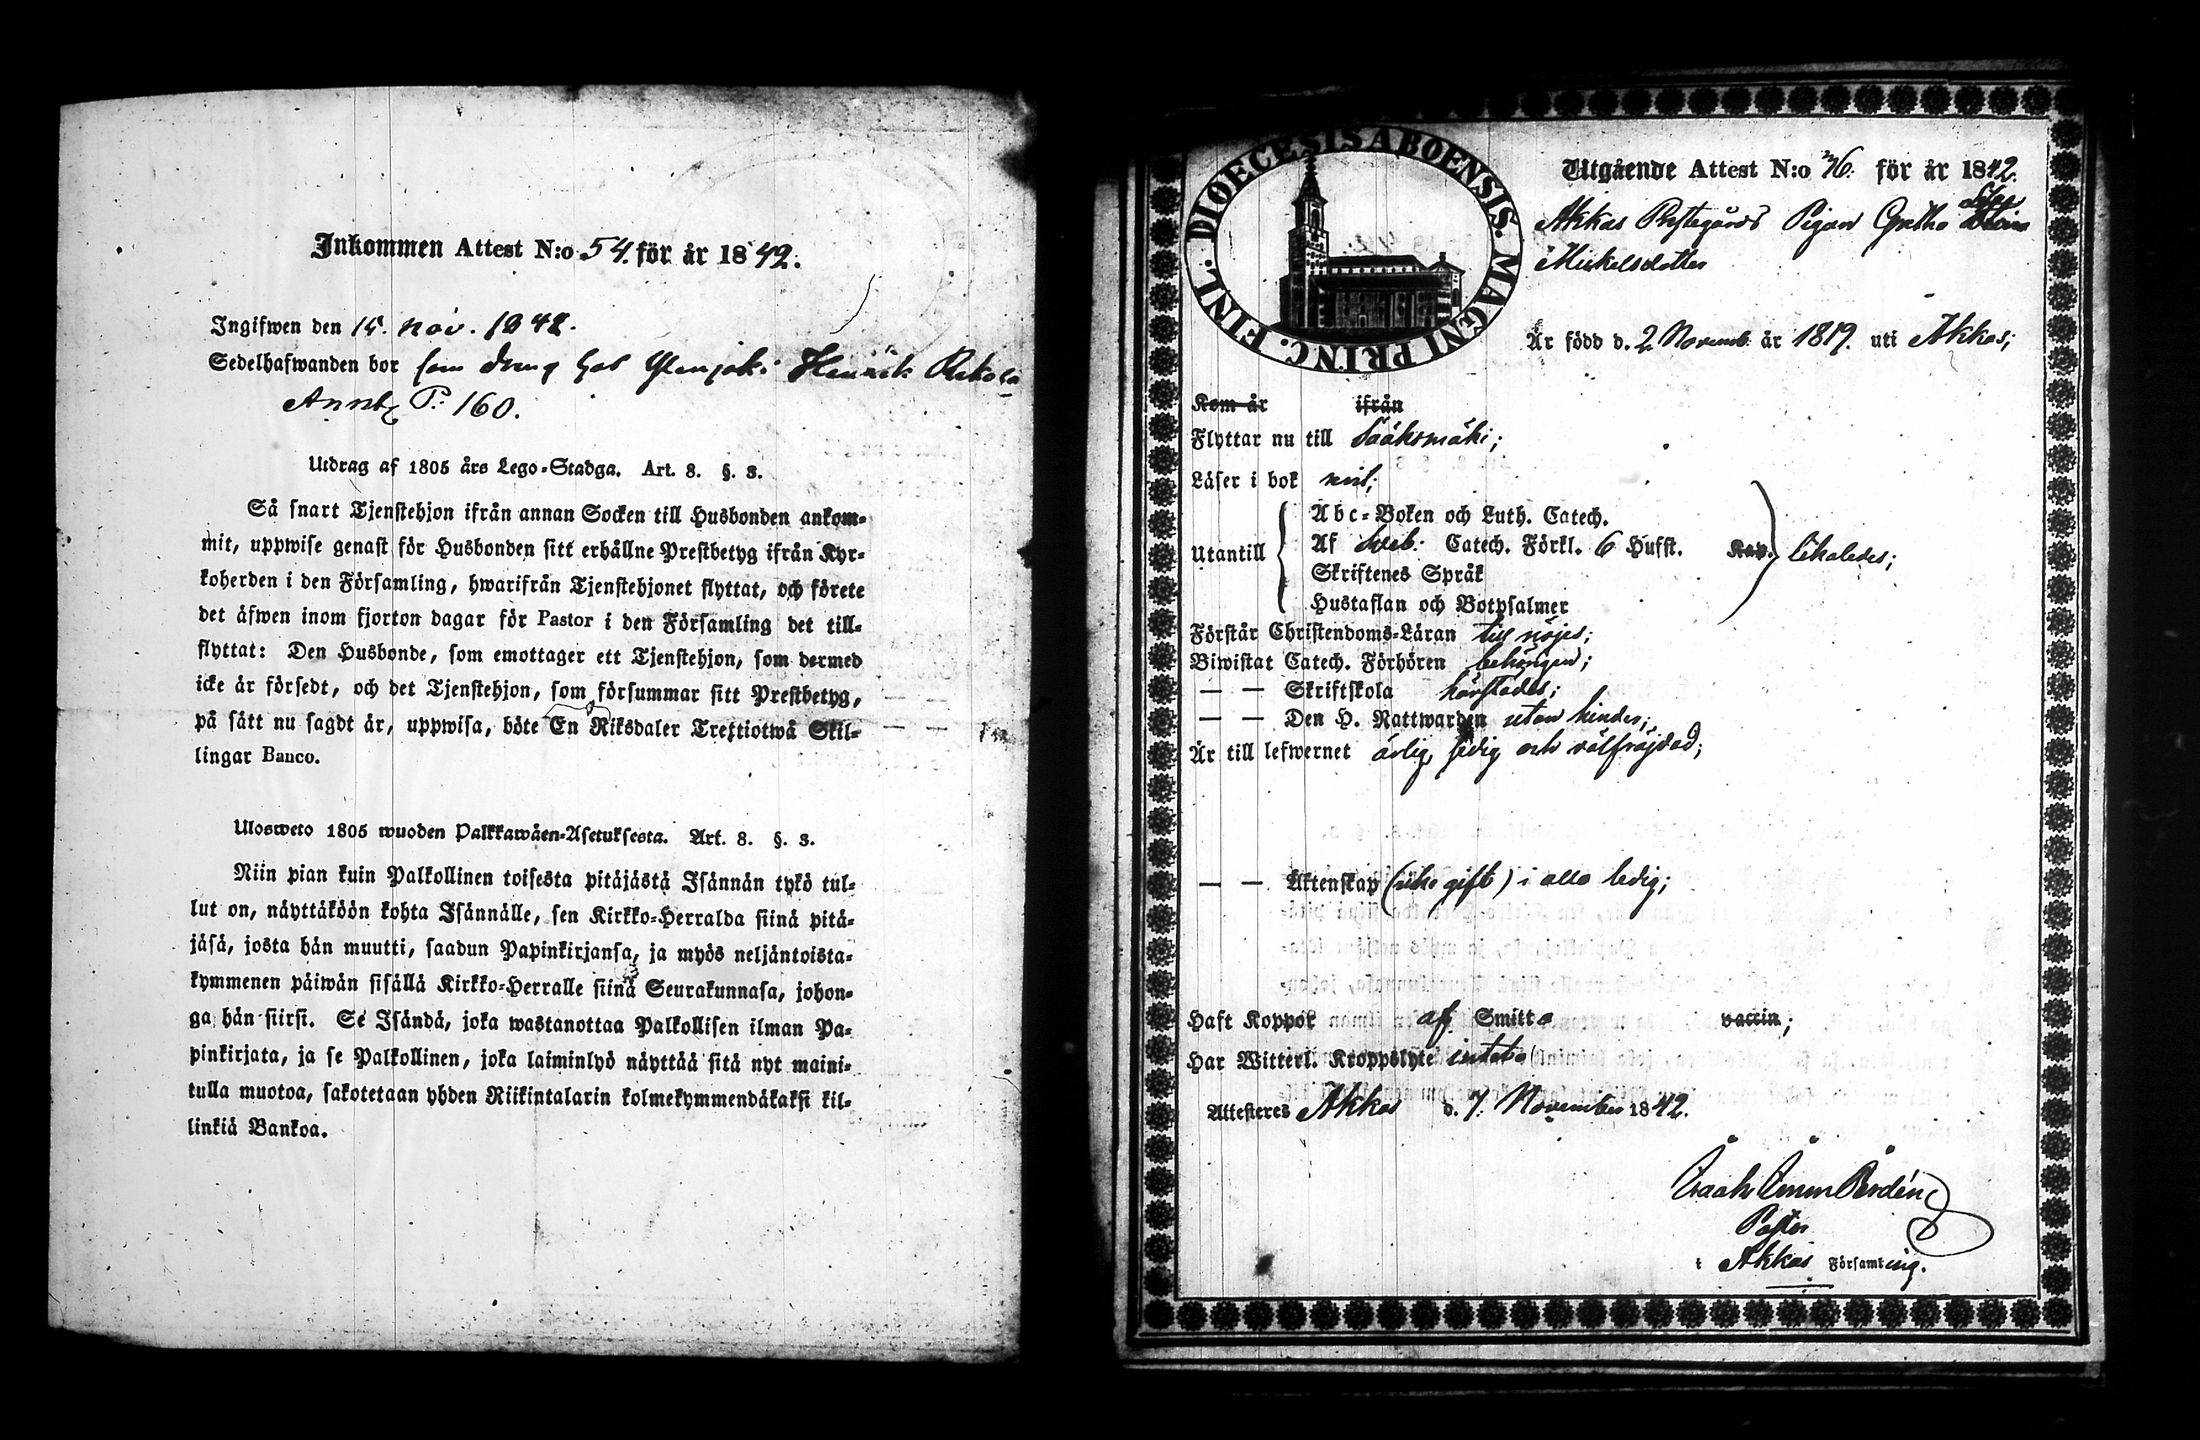 Inkommen Attest N:o 54. för år 1842.
Ingifwen den 15. nov. 1842.
Sedelhafwanden bor som dreng hos Henrik
P. 160.
Utdrag af 1805 års Lego-Stadga. Art. 8. §. 3.
Så snart Tjenstehjon ifrån annan Socken till Husbonden ankom-
mit, uppwise genast för Husbonden sitt erhållne Prestbetyg ifrån Kyr-
koherden i den Församling, hwarifrån Tjenstehjonet flyttat, och förete
det äfwen inom fjorton dagar för Pastor i den Församling det till-
flyttat: Den Husbonde, som emottager ett Tjenstehjon, som dermed
icke är försedt, och det Tjenstehjon, som försummar sitt Prestbetyg,
på sätt nu sagdt är, uppwisa, böte En Riksdaler Trettiotwå Skil-
lingar Banco.
Ulosweto 1805 wuoden Palkkawäen-Asetuksesta. Art. 8. §. 3.
Niin pian kuin Palkollinen toisesta pitäjästä Isännän tykö tul-
lut on, näyttäköön kohta Isännälle, sen Kirkko-Herralda siinä pitä-
jäsä, josta hän muutti, saadun Papinkirjansa, ja myös neljäntoista-
kymmenen päiwän sisällä Kirkko-Herralle siinä Seurakunnasa, johon-
ga hän siirsi. Se Isändä, joka wastanottaa Palkollisen ilman Pa-
pinkirjata, ja se Palkollinen, joka laiminlyö näyttää sitä nyt maini-
tulla muotoa, sakotetaan yhden Riikintalarin kolmekymmendäkaksi kil-
linkiä Bankoa.
DIOECESIS ABOENSIS. MAGNI PRINC. FINL.
Utgående Attest N:o 76. för år 1842.
Akkas Prestegårds Pigan Gretha
Mickelsdotter
Är född d. 2 Novemb. år 1819. uti Akkas;
Kom år ifrån
Flyttar nu till Sääksmäki;
Läser i bok nöjl;
Utantill
Abc-Boken och Luth. Catech.
Af Sveb. Catech. Förkl. 6 Husst. Kap. likaledes;
Skriftenes Språk
Hustaflan och Botpsalmer
Förstår Christendoms-Läran till nöjes;
Biwistat Catech. Förhören behörigen;
— — Skriftskola härstädes;
— — Den H. Nattwarden utan hinder;
Är till lefwernet ärlig, sedig och välfräjdad;
— — Äktenskap (icke gift) i allo ledig;
Haft Koppor af Smitta vaccin;
Har Witterl. Kroppslyte intet
Attesteres Akkas d. 7. November 1842.
Pastor
i Akkas Församling.